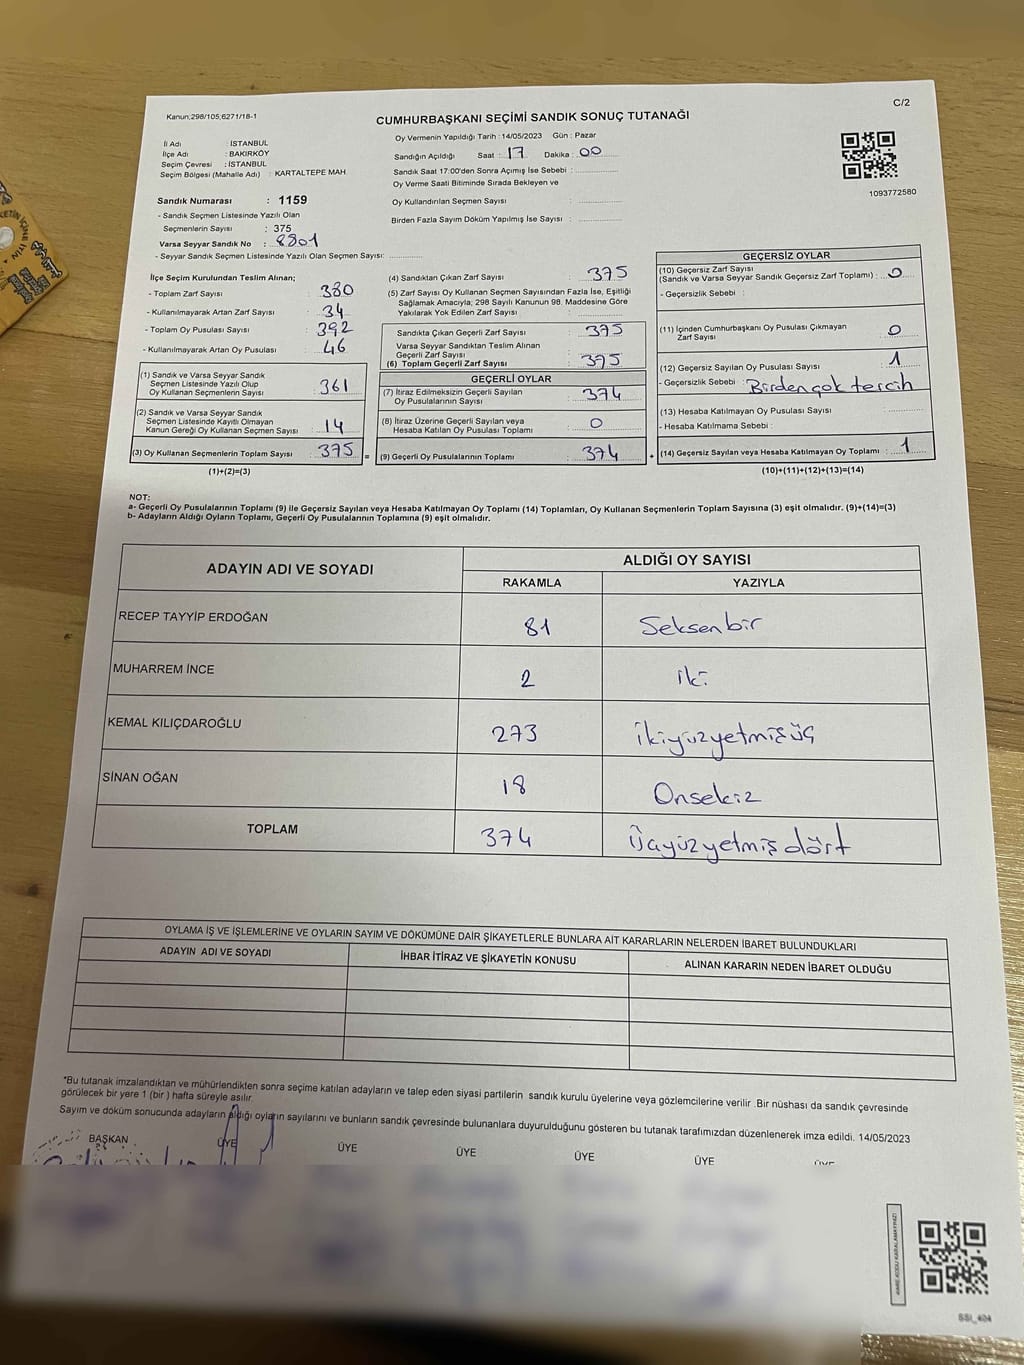 Kanun:298/105;6271/18-1
C/2
CUMHURBAŞKANI SEÇİMİ SANDIK SONUÇ TUTANAĞI
Oy Vermenin Yapıldığı Tarih : 14/05/2023 Gün : Pazar
İl Adı : İSTANBUL
İlçe Adı : BAKIRKÖY
Seçim Çevresi : İSTANBUL
Seçim Bölgesi (Mahalle Adı) : KARTALTEPE MAH.
Sandığın Açıldığı Saat : 17 Dakika : 00
Sandık Saat 17:00'den Sonra Açımış İse Sebebi :
Oy Verme Saati Bitiminde Sırada Bekleyen ve
Oy Kullandırılan Seçmen Sayısı :
Birden Fazla Sayım Döküm Yapılmış İse Sayısı :
1093772580
Sandık Numarası : 1159
- Sandık Seçmen Listesinde Yazılı Olan
Seçmenlerin Sayısı : 375
Varsa Seyyar Sandık No : 8801
- Seyyar Sandık Seçmen Listesinde Yazılı Olan Seçmen Sayısı:
İlçe Seçim Kurulundan Teslim Alınan;
- Toplam Zarf Sayısı : 380
- Kullanılmayarak Artan Zarf Sayısı : 34
- Toplam Oy Pusulası Sayısı : 392
- Kullanılmayarak Artan Oy Pusulası : 46
(1) Sandık ve Varsa Seyyar Sandık
Seçmen Listesinde Yazılı Olup
Oy Kullanan Seçmenlerin Sayısı : 361
(2) Sandık ve Varsa Seyyar Sandık
Seçmen Listesinde Kayıtlı Olmayan
Kanun Gereği Oy Kullanan Seçmen Sayısı : 14
(3) Oy Kullanan Seçmenlerin Toplam Sayısı : 375
(1)+(2)=(3)
(4) Sandıktan Çıkan Zarf Sayısı : 375
(5) Zarf Sayısı Oy Kullanan Seçmen Sayısından Fazla İse, Eşitliği
Sağlamak Amacıyla; 298 Sayılı Kanunun 98. Maddesine Göre
Yakılarak Yok Edilen Zarf Sayısı :
Sandıkta Çıkan Geçerli Zarf Sayısı : 375
Varsa Seyyar Sandıktan Teslim Alınan
Geçerli Zarf Sayısı :
(6) Toplam Geçerli Zarf Sayısı : 375
GEÇERLİ OYLAR
(7) İtiraz Edilmeksizin Geçerli Sayılan
Oy Pusulalarının Sayısı : 374
(8) İtiraz Üzerine Geçerli Sayılan veya
Hesaba Katılan Oy Pusulası Toplamı : 0
= (9) Geçerli Oy Pusulalarının Toplamı : 374
GEÇERSİZ OYLAR
(10) Geçersiz Zarf Sayısı
(Sandık ve Varsa Seyyar Sandık Geçersiz Zarf Toplamı) : 0
- Geçersizlik Sebebi :
(11) İçinden Cumhurbaşkanı Oy Pusulası Çıkmayan
Zarf Sayısı : 0
(12) Geçersiz Sayılan Oy Pusulası Sayısı : 1
- Geçersizlik Sebebi : Birden çok tercih
(13) Hesaba Katılmayan Oy Pusulası Sayısı :
- Hesaba Katılmama Sebebi :
+ (14) Geçersiz Sayılan veya Hesaba Katılmayan Oy Toplamı : 1
(10)+(11)+(12)+(13)=(14)
NOT:
a- Geçerli Oy Pusulalarının Toplamı (9) ile Geçersiz Sayılan veya Hesaba Katılmayan Oy Toplamı (14) Toplamları, Oy Kullanan Seçmenlerin Toplam Sayısına (3) eşit olmalıdır. (9)+(14)=(3)
b- Adayların Aldığı Oyların Toplamı, Geçerli Oy Pusulalarının Toplamına (9) eşit olmalıdır.
ADAYIN ADI VE SOYADI
ALDIĞI OY SAYISI
RAKAMLA YAZIYLA
RECEP TAYYİP ERDOĞAN 81 Seksenbir
MUHARREM İNCE 2 iki
KEMAL KILIÇDAROĞLU 273 ikiyüzyetmişüç
SİNAN OĞAN 18 Onsekiz
TOPLAM 374 Üçyüzyetmiş dört
OYLAMA İŞ VE İŞLEMLERİNE VE OYLARIN SAYIM VE DÖKÜMÜNE DAİR ŞİKAYETLERLE BUNLARA AİT KARARLARIN NELERDEN İBARET BULUNDUKLARI
ADAYIN ADI VE SOYADI İHBAR İTİRAZ VE ŞİKAYETİN KONUSU ALINAN KARARIN NEDEN İBARET OLDUĞU
*Bu tutanak imzalandıktan ve mühürlendikten sonra seçime katılan adayların ve talep eden siyasi partilerin sandık kurulu üyelerine veya gözlemcilerine verilir .Bir nüshası da sandık çevresinde
görülecek bir yere 1 (bir ) hafta süreyle asılır.
Sayım ve döküm sonucunda adayların aldığı oyların sayılarını ve bunların sandık çevresinde bulunanlara duyurulduğunu gösteren bu tutanak tarafımızdan düzenlenerek imza edildi. 14/05/2023
BAŞKAN ÜYE ÜYE ÜYE ÜYE ÜYE ÜYE
KARE KODU KARALAMAYINIZ!
SSI_404